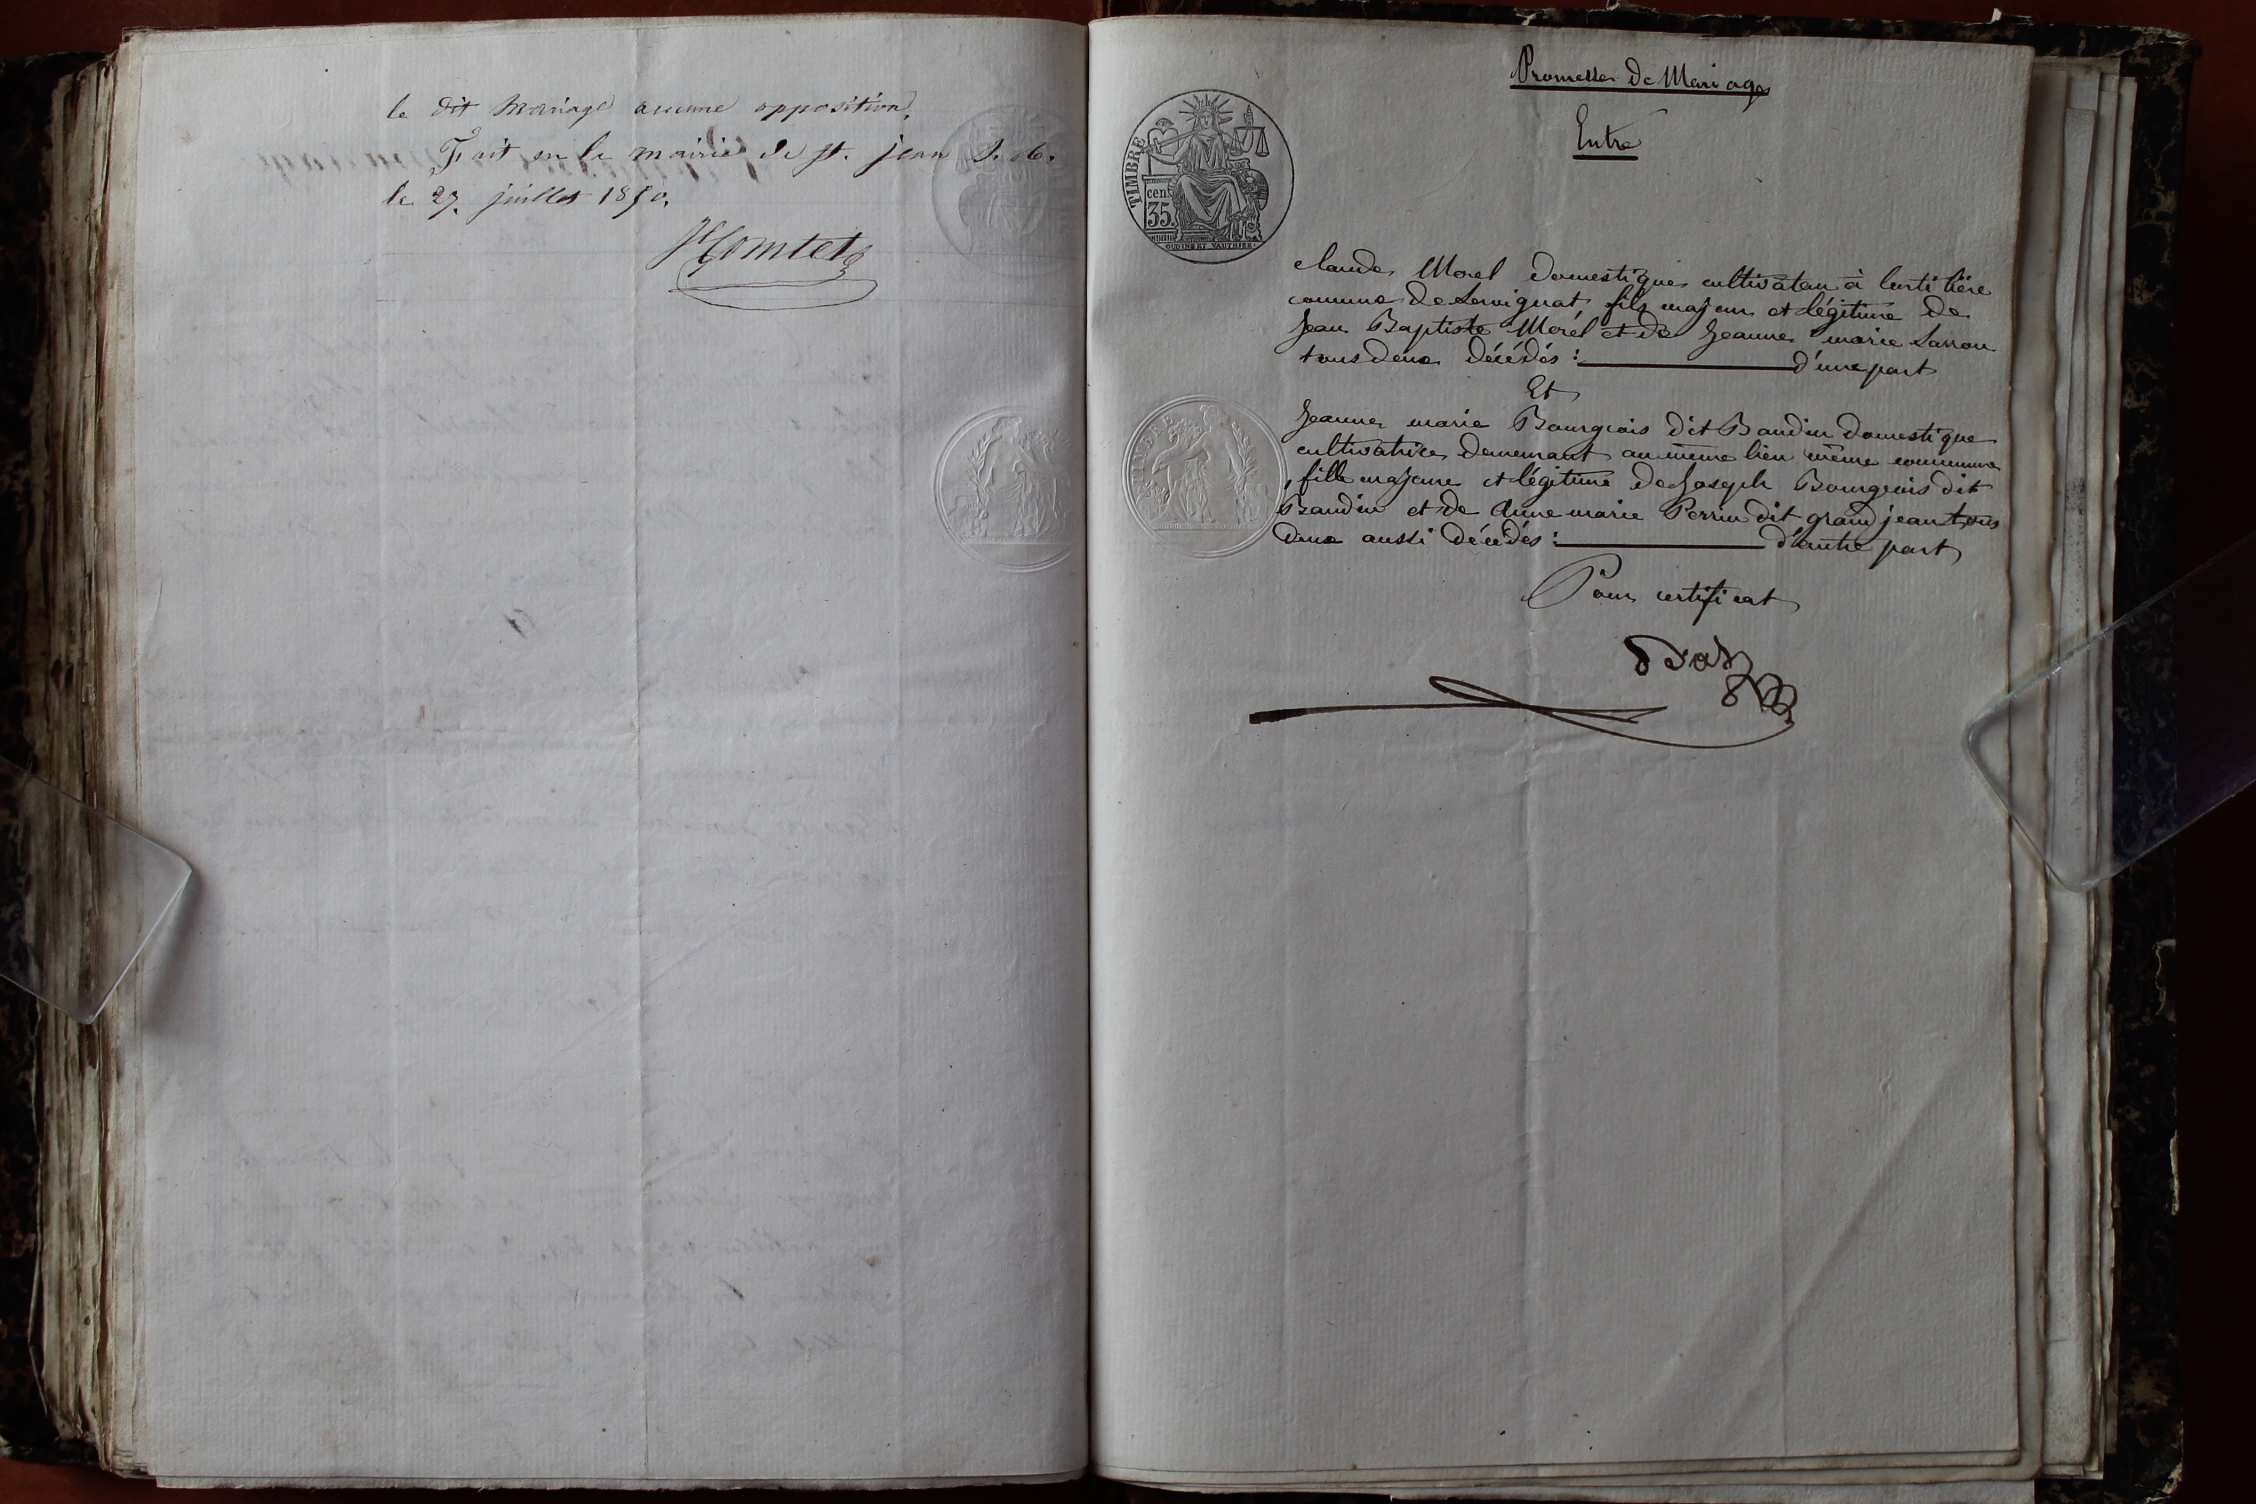 le dit Mariage aucune opposition,
Fait en la mairie de st. jean
le 27. juillet 1850,
Comtet
Promesse De Mariage
Entre
TIMBRE
cent
35
OUDINÉ ET VAUTHIER
claude Morel domestique cultivateur à
commune de Servignat fils majeur et légitime de
Jean Baptiste Morel et de Jeanne marie Sarron
tous deux décédés : d'une part
Et
Jeanne marie Bourgeois dit Baudin domestique
cultivatrice demeurant au même lieu même commune
, fille majeure et légitime de Joseph Bourgeois dit
Baudin et de Anne marie Perrin dit grand jean tous
deux aussi décédés : d'autre part
Pour certificat
TIMBRE